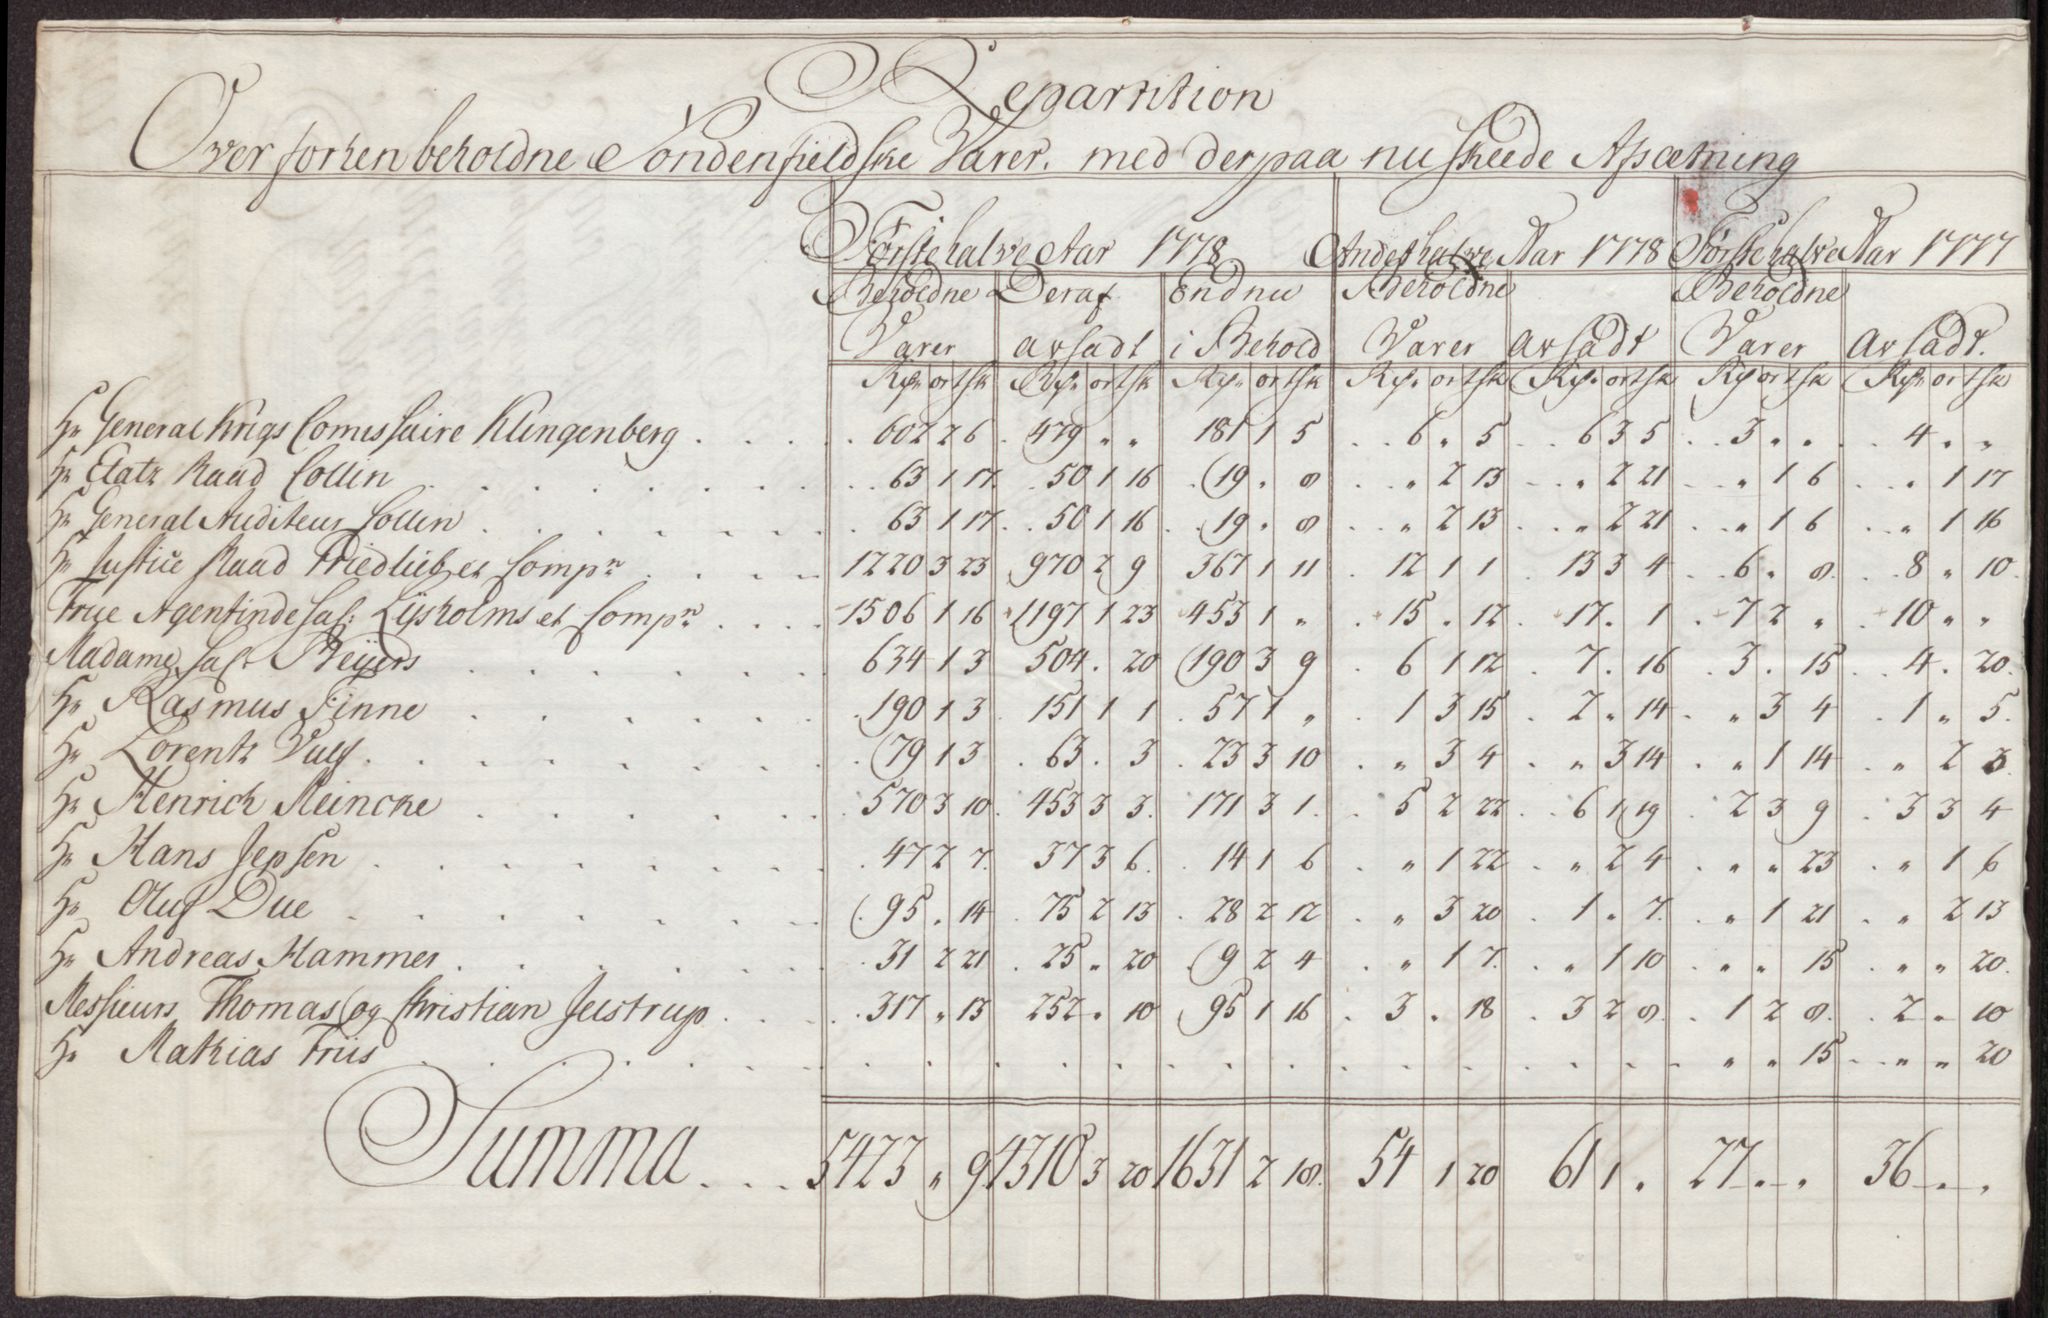 Repartition
Over forhen beholdne Söndenfieldske Varer, med derpaa nu skeede Afsætning
Förstehalve Aar 1778 Andethalve Aar 1778 Förstehalve Aar 1777
Beholdne Deraf Endnu Beholdne Beholdne
Varer avsadt i Behold Varer avsadt Varer avsadt.
Rdr ort sk Rdr ort sk Rdr ort sk Rdr ort sk Rdr ort sk Rdr ort sk Rdr ort sk
Hr General Krigs Comissaire Klingenberg . . . 602 2 6 479 „ „ 181 1 5 6 „ 5 6 3 5 3 „ „ 4 „ „
Hr Etatz Raad Collin . . . 63 1 17 50 1 16 19 „ 8 „ 2 13 „ 2 21 „ 1 6 „ 1 17
Hr General Auditeur Collin . . . 63 1 17 50 1 16 19 „ 8 „ 2 13 „ 2 21 „ 1 6 „ 1 16
Hr Justice Raad Friedlieb et Compn . . . 1220 3 23 970 2 9 367 1 11 12 1 1 13 3 4 6 „ 8 8 „ 10
Frue Agentinde Sal: Lysholms et Compn . . . 1506 1 16 1197 1 23 453 1 „ 15 „ 12 17 „ 1 7 2 „ 10 „ „
Madame Sal. Beyers . . . 634 1 3 504 „ 20 190 3 9 6 1 12 7 „ 16 3 „ 15 4 „ 20
Hr Rasmus Finne . . . 190 1 3 151 1 1 57 1 „ 1 3 15 2 „ 14 „ 3 4 1 „ 5
Hr Lorentz Vulf . . . 79 1 3 63 „ 3 23 3 10 „ 3 4 „ 3 14 „ 1 14 „ 2 3
Hr Henrich Meincke . . . 570 3 10 453 3 3 171 3 1 5 2 22 6 1 19 2 3 9 3 3 4
Hr Hans Jepsen . . . 47 2 7 37 3 6 14 1 6 „ 1 22 „ 2 4 „ „ 23 „ 1 6
Hr Oluf Due . . . 95 „ 14 75 2 13 28 2 12 „ 3 20 1 „ 7 „ 1 21 „ 2 13
Hr Andreas Hammer . . . 31 2 21 25 „ 20 9 2 4 „ 1 7 „ 1 10 „ „ 15 „ „ 20
Messieurs Thomas og Christian Jelstrup . . . 317 „ 13 252 „ 10 95 1 16 3 „ 18 3 2 8 1 2 8 2 „ 10
Hr Mathias Friis . . . „ „ 15 „ „ 20
Summa . . . 5423 „ 9 4310 3 20 1631 2 18 54 1 20 61 1 „ 27 „ „ 36 „ „